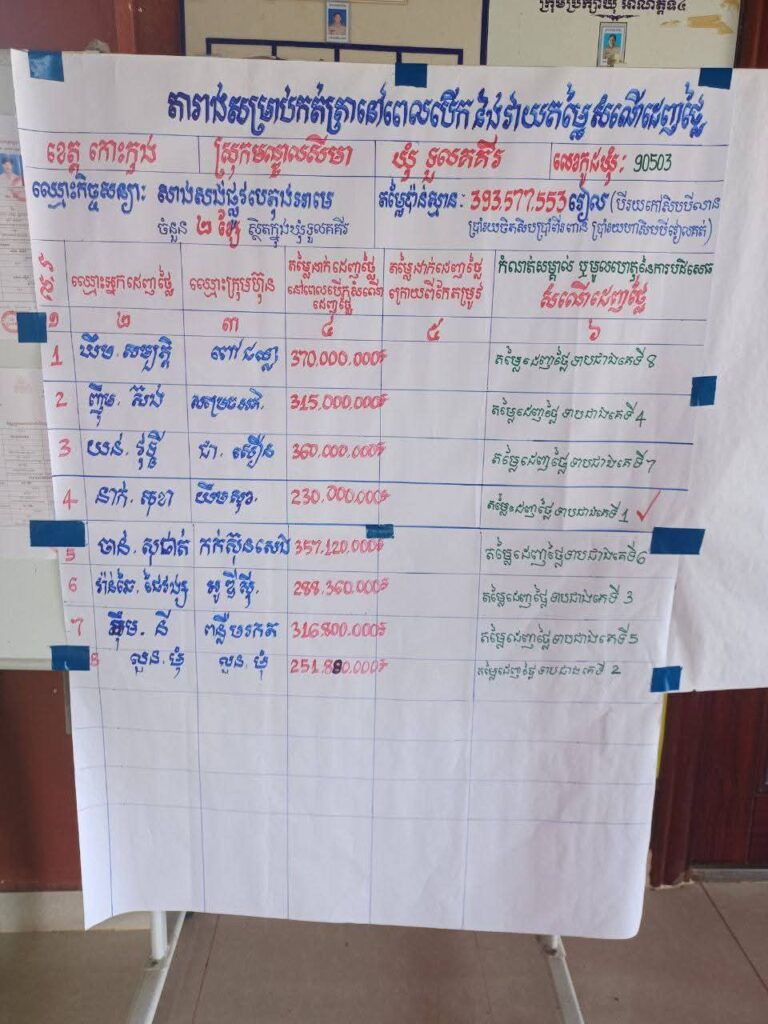 ក្រុមប្រឹក្សាឃុំ អាណត្តិទី៤
តារាងសម្រាប់កត់ត្រានៅពេលបើក និងវាយតម្លៃសំណើដេញថ្លៃ
ខេត្ត កោះកុង ស្រុកមណ្ឌលសីមា ឃុំ ទួលគគីរ លេខកូដឃុំ: 90503
ឈ្មោះកិច្ចសន្យា: សាងសង់ផ្លូវបេតុងអាមេ តម្លៃប៉ាន់ស្មាន: 393,577,553 រៀល (បីរយកៅសិបបីលាន
ចំនួន ២ ខ្សែ ស្ថិតក្នុងឃុំទួលគគីរ ប្រាំរយចិតសិបប្រាំពីរពាន់ ប្រាំរយហាសិបបីរៀលគត់)
ល.រ ឈ្មោះអ្នកដេញថ្លៃ ឈ្មោះក្រុមហ៊ុន តម្លៃដាក់ដេញថ្លៃ នៅពេលបើកសំណើ ដេញថ្លៃ តម្លៃដាក់ដេញថ្លៃ ក្រោយពីកែតម្រូវ កំណត់សម្គាល់ ឬមូលហេតុនៃការបដិសេធ សំណើដេញថ្លៃ
១ ២ ៣ ៤ ៥ ៦
1 ឃឹម. សម្បត្តិ ពៅ 370,000,000៛ តម្លៃដេញថ្លៃទាបជាងគេទី 8
2 ញ៉ឹម. ស៊ង់ 315,000,000៛ តម្លៃដេញថ្លៃទាបជាងគេទី 4
3 យន់. វុទ្ធី ជា. 360,000,000៛ តម្លៃដេញថ្លៃទាបជាងគេទី 7
4 នាក់. សុខា 230,000,000៛ តម្លៃដេញថ្លៃទាបជាងគេទី 1 ✓
5 ចាន់. សុផាត់ កក់ស៊ុនសេង 357,120,000៛ តម្លៃដេញថ្លៃទាបជាងគេទី 6
6 អូ ឌីស៊ី. 288,360,000៛ តម្លៃដេញថ្លៃទាបជាងគេទី 3
7 ឆឹម. នី ពន្លឺមរកត 316,800,000៛ តម្លៃដេញថ្លៃទាបជាងគេទី 5
8 លួន. ម៉ុំ លួន. ម៉ុំ 251,880,000៛ តម្លៃដេញថ្លៃទាបជាងគេទី 2